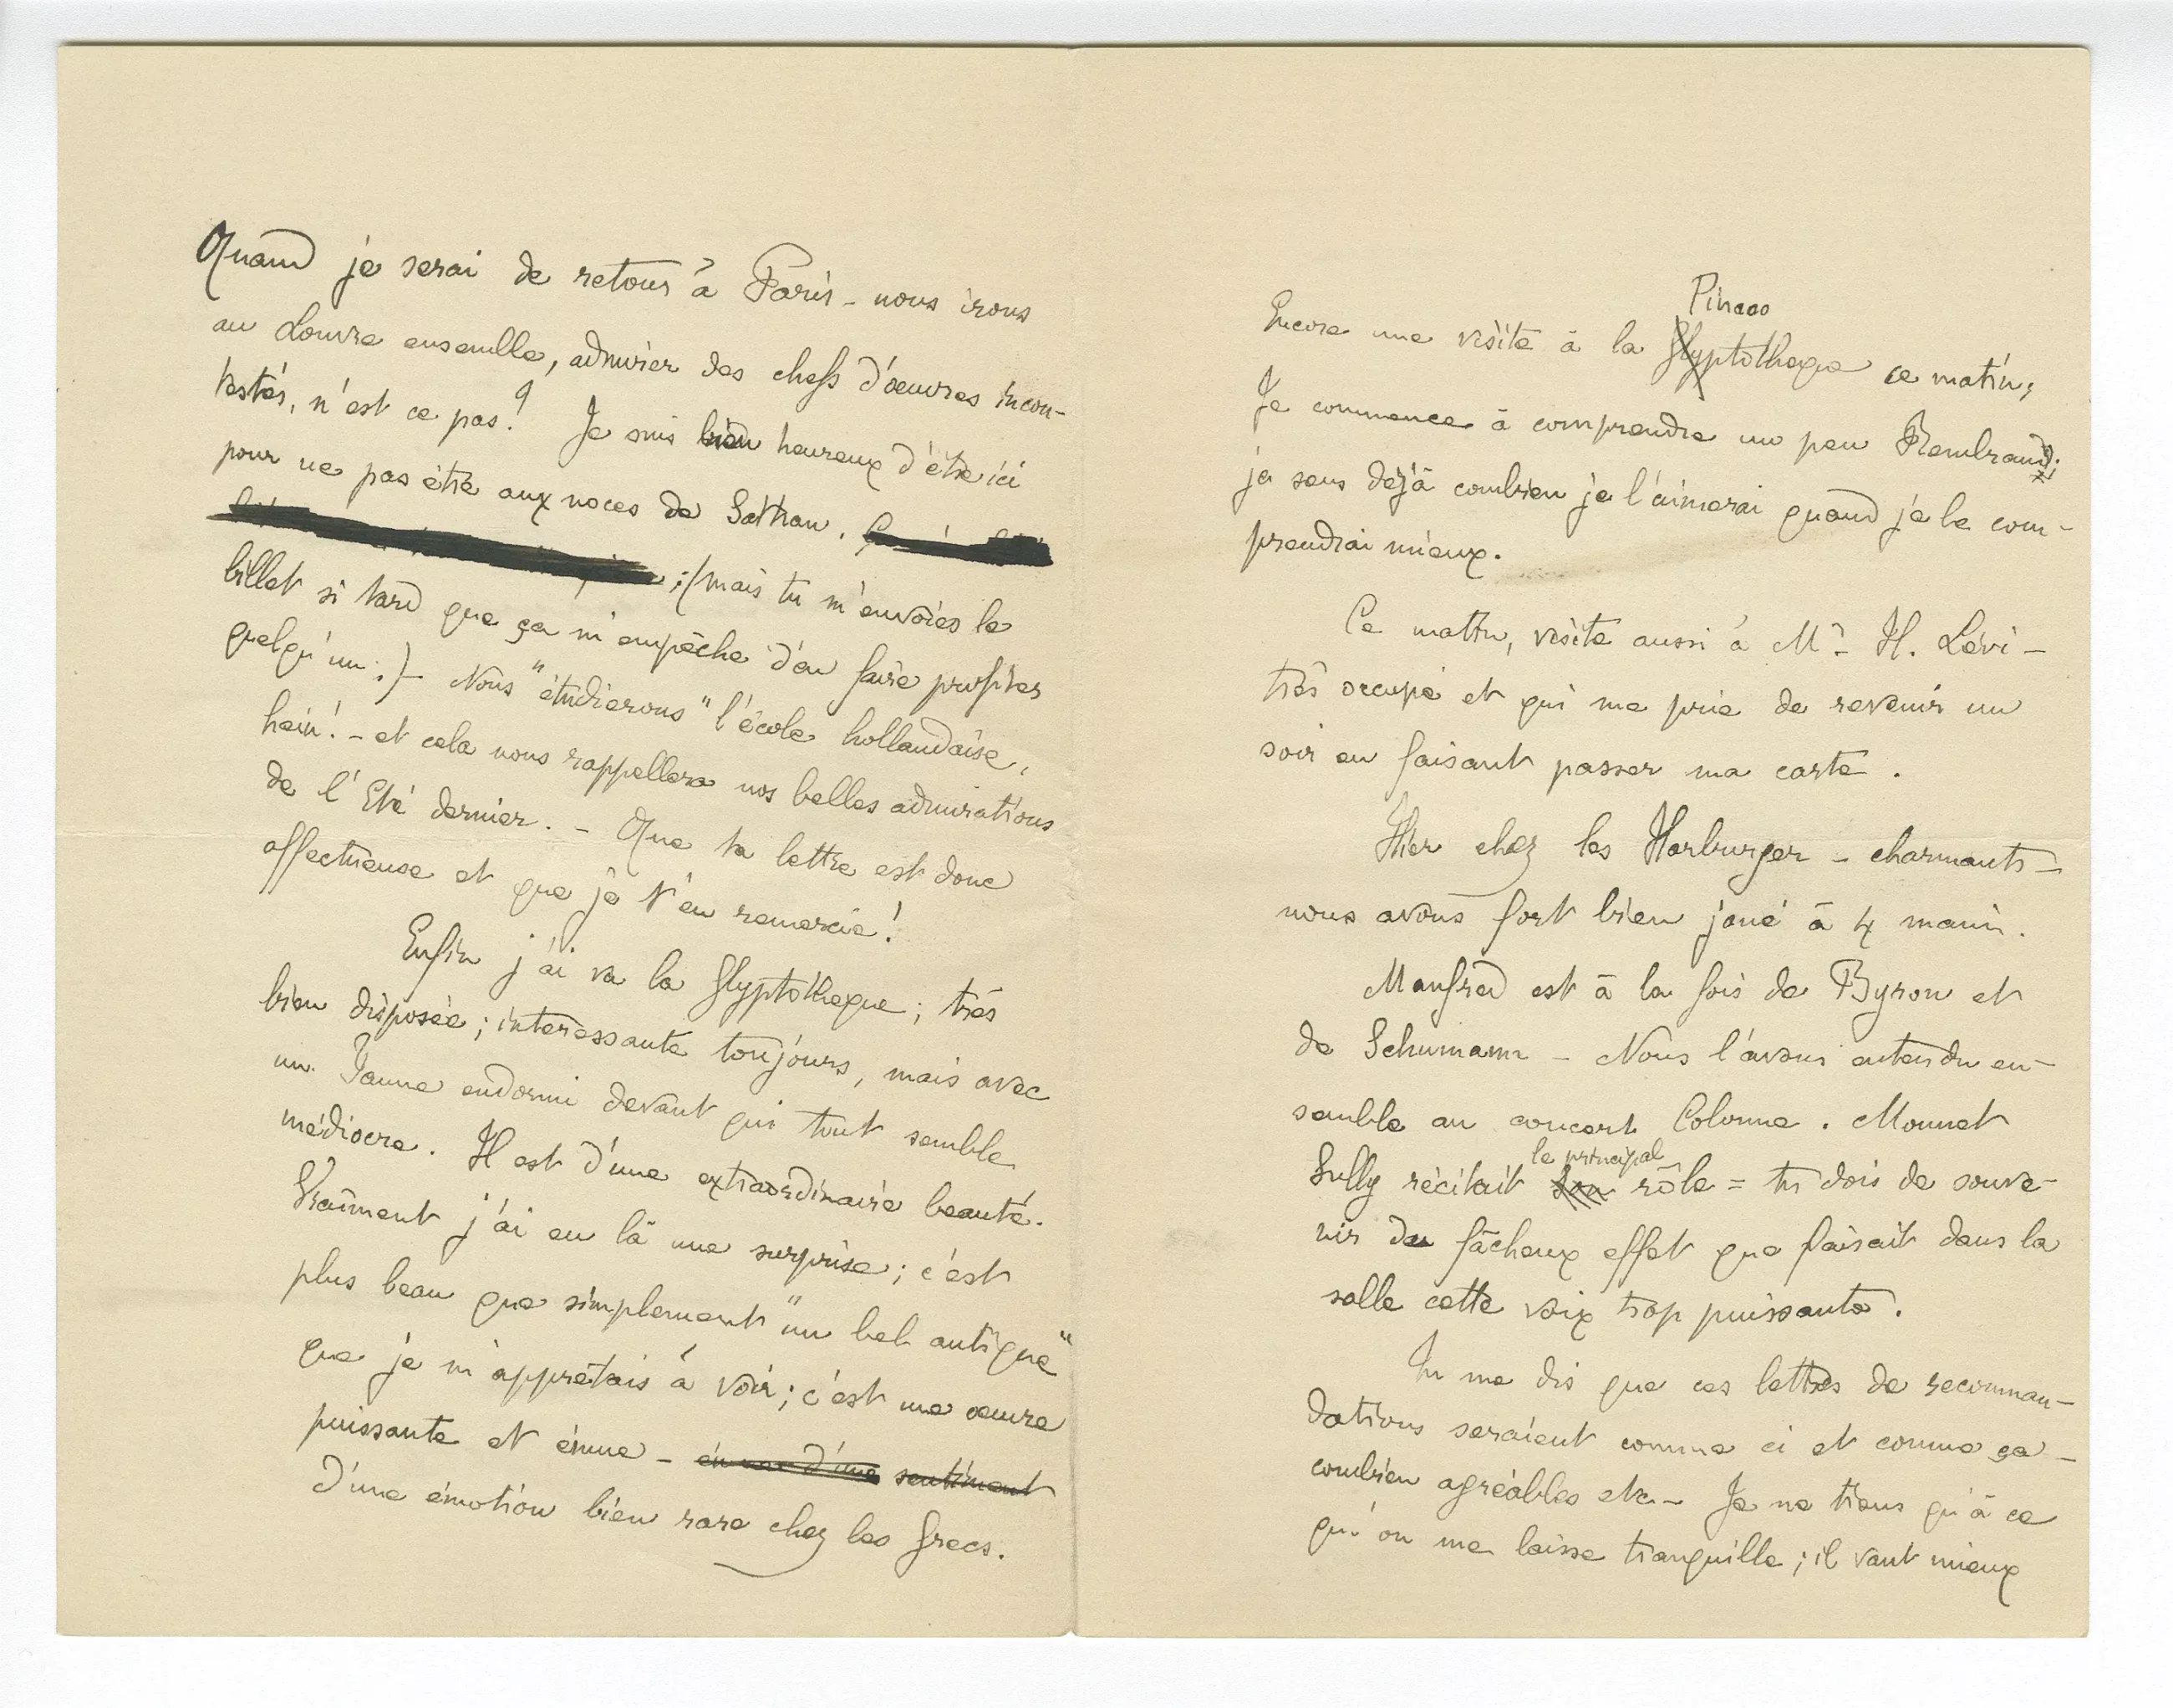 Quand je serai de retour à Paris - nous irons
au Louvre ensemble, admirer des chefs d'œuvres incon-
testés, n'est ce pas? Je suis bien heureux d'être ici
pour ne pas être aux noces de Sathan.
; (mais tu m'envoies le
billet si tard que ça m'empêche d'en faire profiter
quelqu'un.) - Nous "étudierons" l'école hollandaise,
hein! - et cela nous rappellera nos belles admirations
de l'Eté dernier. - Que ta lettre est donc
affectueuse et que je t'en remercie!
Enfin j'ai vu la Glyptotheque; très
bien disposée; interessante toujours, mais avec
un Faune endormi devant qui tout semble
médiocre. Il est d'une extraordinaire beauté.
Vraiment j'ai eu là une surprise; c'est
plus beau que simplement "un bel antique"
que je m'apprêtais à voir; c'est une œuvre
puissante et émue - d'une sentiment
d'une émotion bien rare chez les Grecs.
Pinaco
Encore une visite à la Glyptotheque ce matin;
Je commence à comprendre un peu Rembrand;
je sens déjà combien je l'aimerai quand je le com-
prendrai mieux.
Ce matin, visite aussi à Mr H. Lévi -
très occupé et qui me prie de revenir un
soir en faisant passer ma carte.
Hier chez les Harburger - charmants -
nous avons fort bien joué à 4 mains.
Manfred est à la fois de Byron et
de Schumann - Nous l'avons entendu en-
semble au concert Colonne. Mounet
le principal
Sully récitait son rôle = tu dois de souve-
nir du fâcheux effet que faisait dans la
salle cette voix trop puissante.
Tu me dis que ces lettres de recomman-
dations seraient comme ci et comme ça -
combien agréables etc - Je ne tiens qu'à ce
qu'on me laisse tranquille; il vaut mieux